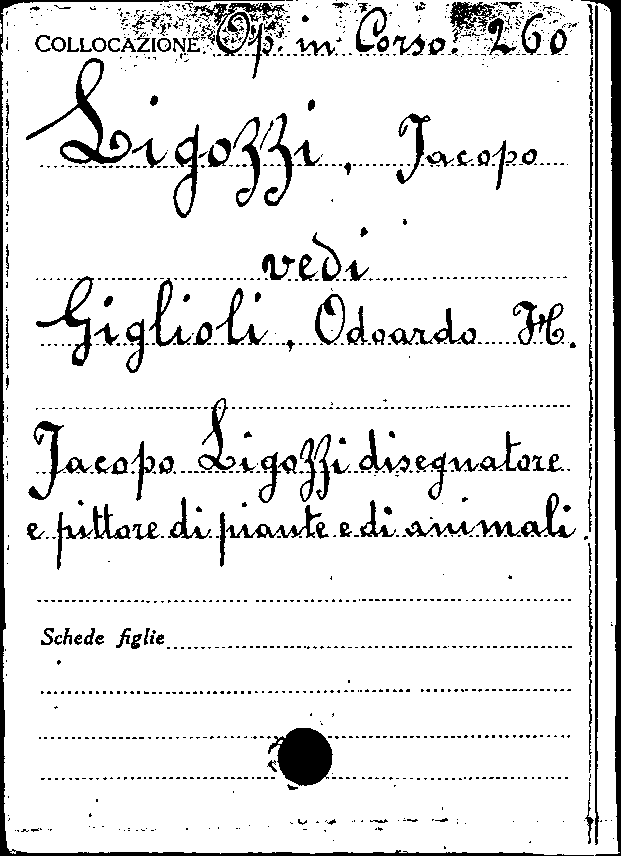 COLLOCAZIONE Op. in Corso. 260
Ligozzi, Jacopo
vedi
Giglioli, Odoardo H.
Jacopo Ligozzi disegnatore
e pittore di piante e di animali.
Schede figlie